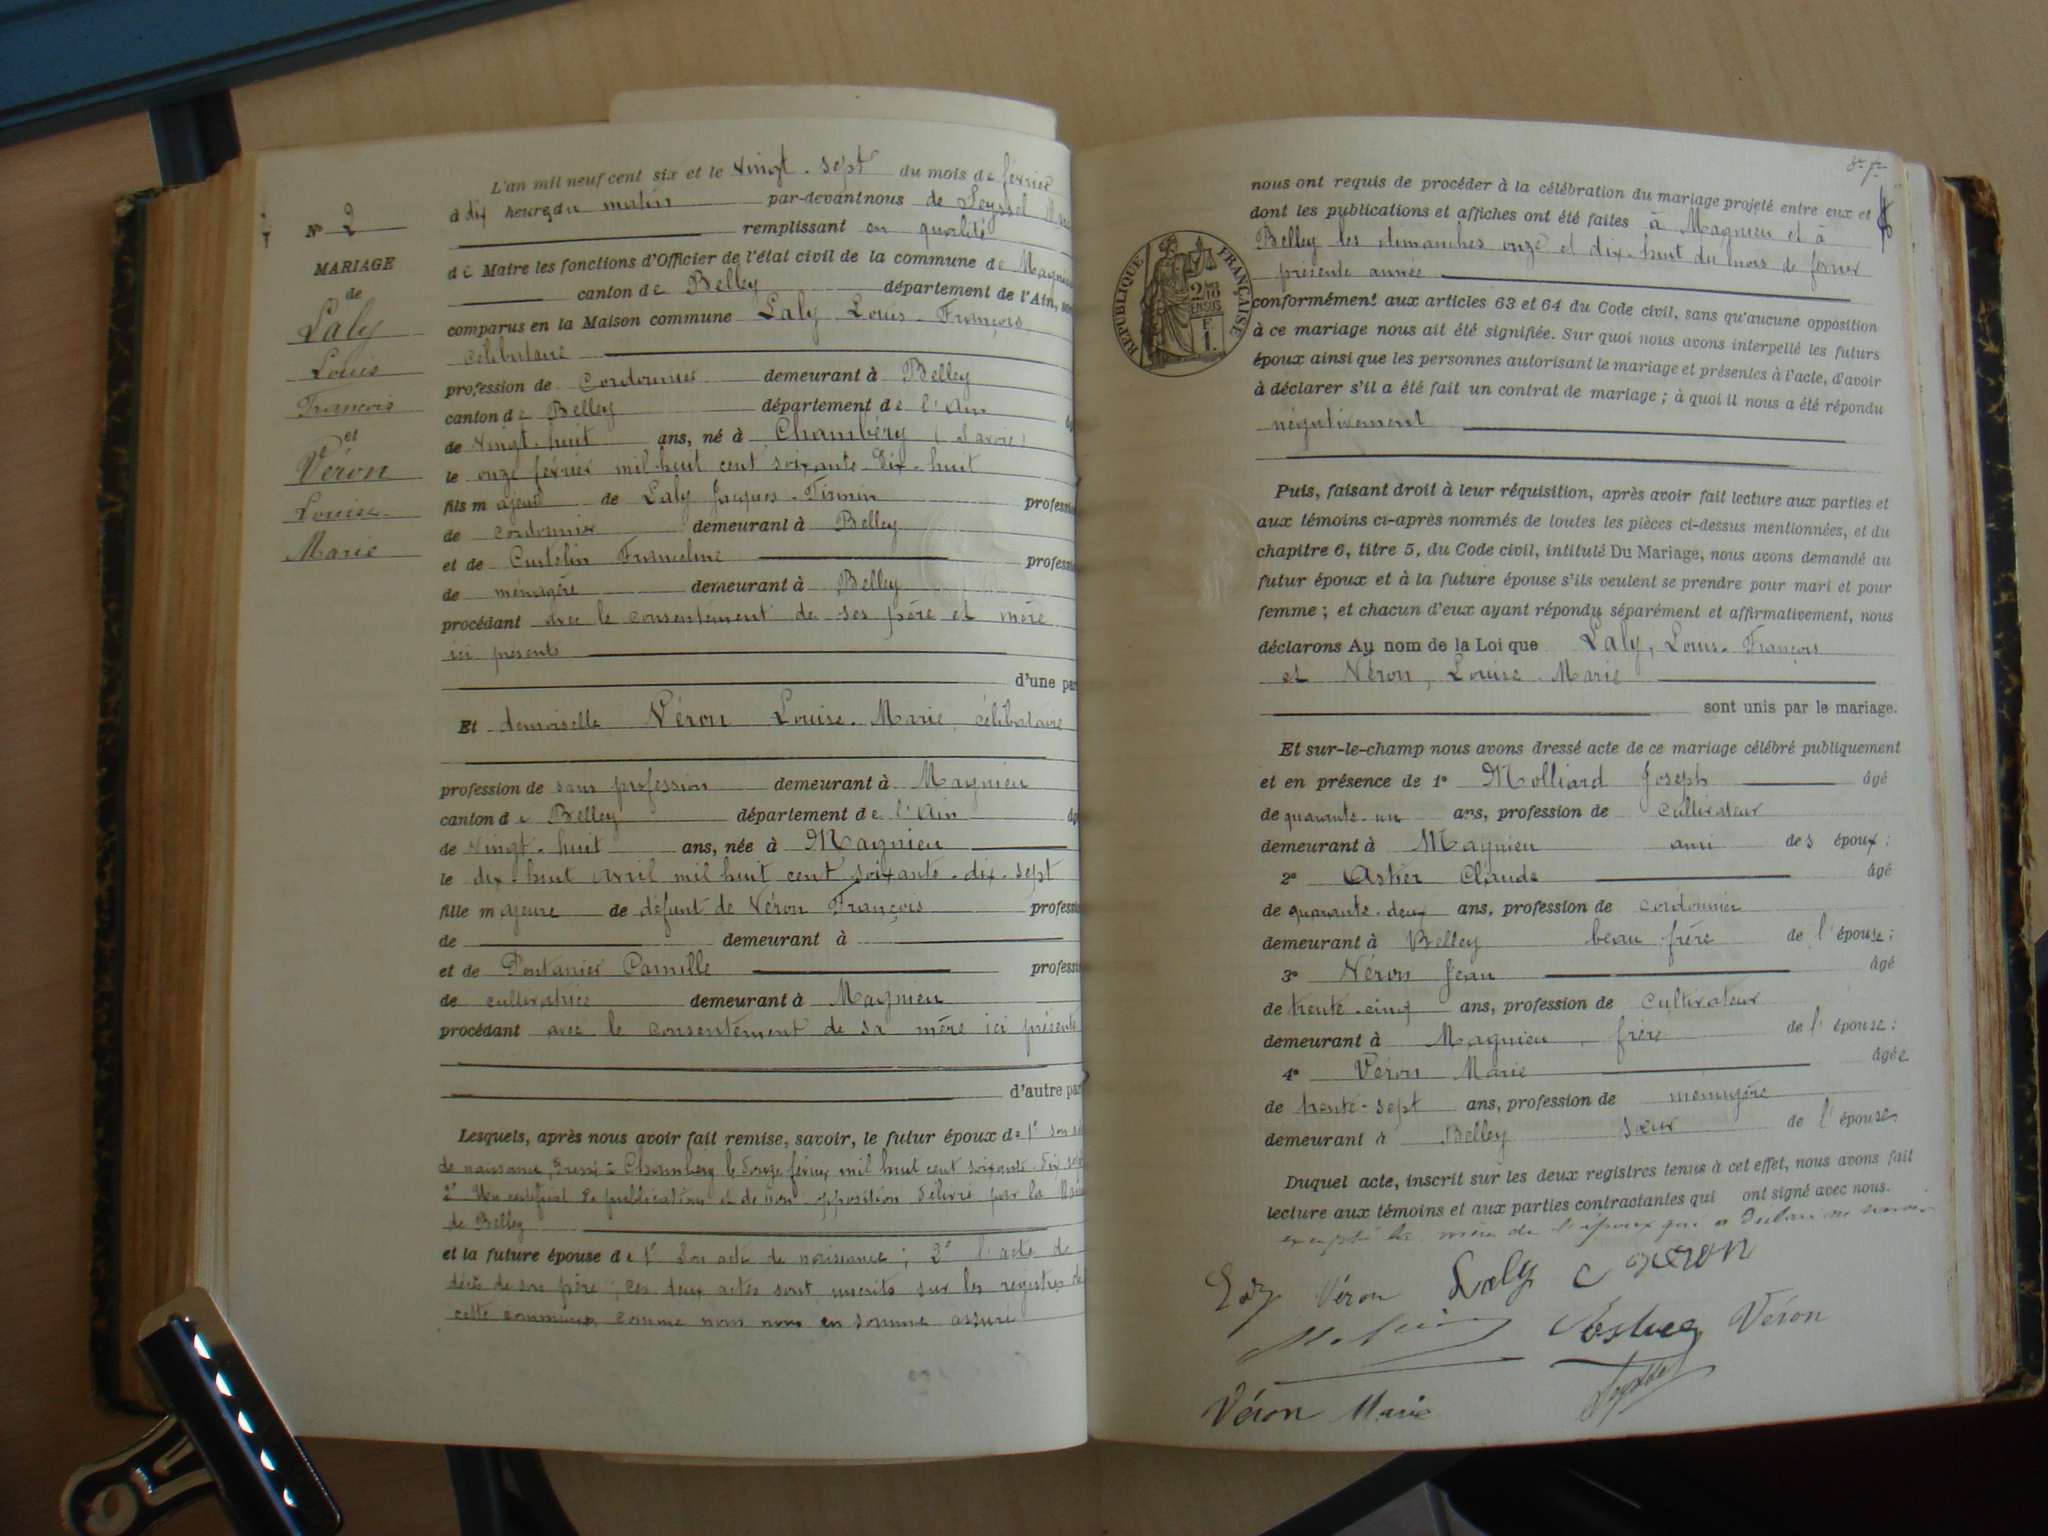 N° 2
MARIAGE
de
Laly
Louis
François
et
Véron
Louise
Marie
L'an mil neuf cent six et le vingt-sept du mois de février
à dix heures du matin par-devant nous de Seyssel
remplissant en qualité
de Maire les fonctions d'Officier de l'état civil de la commune de Magnieu
canton de Belley département de l'Ain, sont
comparus en la Maison commune Laly Louis-François
célibataire
profession de cordonnier demeurant à Belley
canton de Belley département de l'Ain
de vingt-huit ans, né à Chambéry (Savoie)
le onze février mil huit cent soixante-dix-huit
fils majeur de Laly Jacques-Firmin profession
de cordonnier demeurant à Belley
et de Curtelin Franceline profession
de ménagère demeurant à Belley
procédant avec le consentement de ses père et mère
ici présents
d'une par
Et demoiselle Véron Louise-Marie, célibataire
profession de sans profession demeurant à Magnieu
canton de Belley département de l'Ain
de vingt-huit ans, née à Magnieu
le dix-huit avril mil huit cent soixante-dix-sept
fille majeure de défunt de Véron François profession
de demeurant à
et de Pontanier Camille profession
de cultivatrice demeurant à Magnieu
procédant avec le consentement de sa mère ici présente
d'autre par
Lesquels, après nous avoir fait remise, savoir, le futur époux de 1° son
de naissance, dressé à Chambéry le douze février mil huit cent soixante-dix
2° Un certificat de publication et de non opposition délivré par la
de Belley
et la future épouse de 1° Son acte de naissance; 2° l'acte de
décès de son père; ces deux actes sont inscrits sur les registres de
cette commune, comme nous nous en sommes assuré
nous ont requis de procéder à la célébration du mariage projeté entre eux et
dont les publications et affiches ont été faites à Magnieu et à
Belley les dimanches onze et dix-huit du mois de février
présente année
conformément aux articles 63 et 64 du Code civil, sans qu'aucune opposition
à ce mariage nous ait été signifiée. Sur quoi nous avons interpellé les futurs
époux ainsi que les personnes autorisant le mariage et présentes à l'acte, d'avoir
à déclarer s'il a été fait un contrat de mariage; à quoi il nous a été répondu
négativement
RÉPUBLIQUE FRANÇAISE
2/10 EN SUS
1 F.
Puis, faisant droit à leur réquisition, après avoir fait lecture aux parties et
aux témoins ci-après nommés de toutes les pièces ci-dessus mentionnées, et du
chapitre 6, titre 5, du Code civil, intitulé Du Mariage, nous avons demandé au
futur époux et à la future épouse s'ils veulent se prendre pour mari et pour
femme; et chacun d'eux ayant répondu séparément et affirmativement, nous
déclarons Au nom de la Loi que Laly, Louis-François
et Véron, Louise-Marie
sont unis par le mariage.
Et sur-le-champ nous avons dressé acte de ce mariage célébré publiquement
et en présence de 1° Molliard Joseph âgé
de quarante-un ans, profession de cultivateur
demeurant à Magnieu ami des époux;
2° Astier Claude âgé
de quarante-deux ans, profession de cordonnier
demeurant à Belley beau frère de l'épouse;
3° Véron Jean âgé
de trente-cinq ans, profession de cultivateur
demeurant à Magnieu, frère de l'épouse;
4° Véron Marie âgée
de trente-sept ans, profession de ménagère
demeurant à Belley sœur de l'épouse
Duquel acte, inscrit sur les deux registres tenus à cet effet, nous avons fait
lecture aux témoins et aux parties contractantes qui ont signé avec nous.
excepté la mère de l'époux qui a déclaré ne savoir
Laly Véron Laly C Véron
Astier Véron
Véron Marie